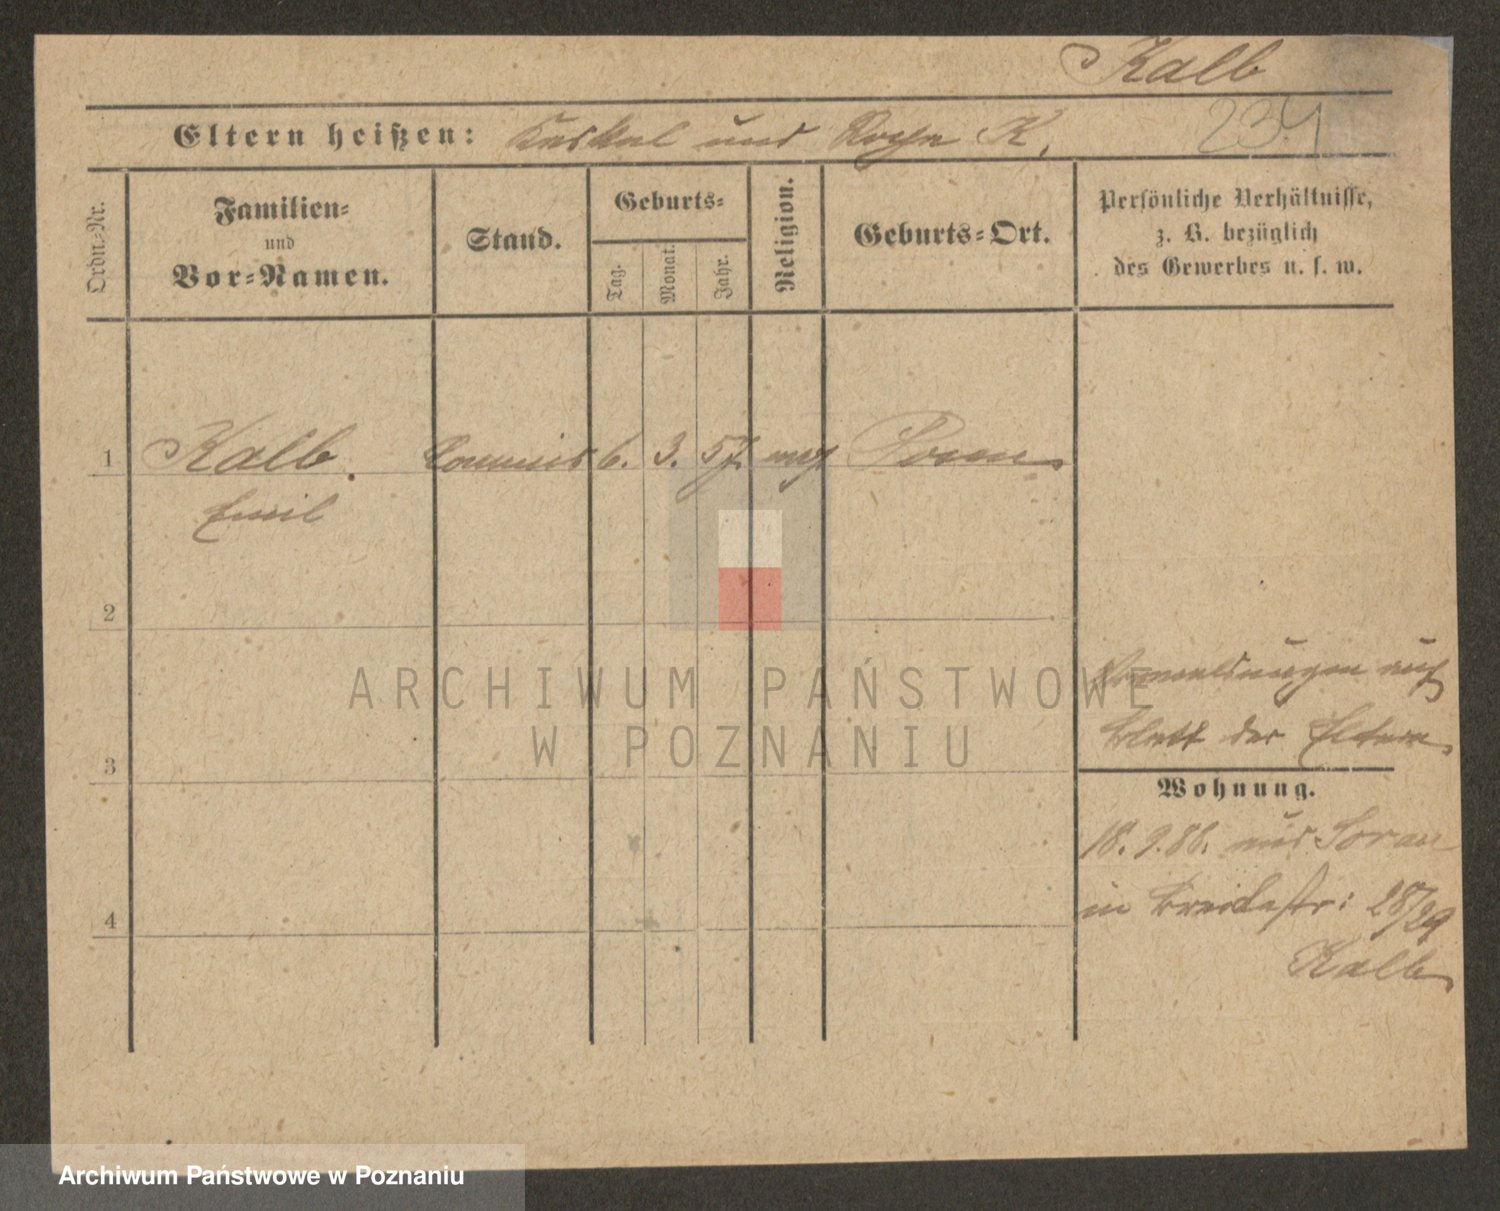 Kalb
Eltern heißen: und K.
234
Ordn.-Nr.
Familien-
und
Vor-Namen.
Stand.
Geburts-
Tag.
Monat.
Jahr.
Religion.
Geburts-Ort.
Persönliche Verhältnisse,
z. B. bezüglich
des Gewerbes u. s. w.
1 Kalb. Commis 6. 3. 57. mos Posen
Emil
2
ARCHIWUM PAŃSTWOWE
W POZNANIU
3
auf
Blatt der Eltern.
Wohnung.
18. 9. 86. aus Soran
in Breitestr: 28/29
Kalb
4
Archiwum Państwowe w Poznaniu